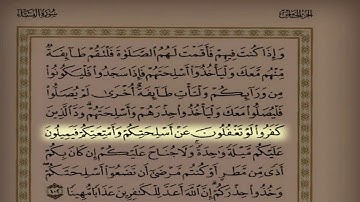 الجزء الخامس
سورة النساء
وَإِذَا كُنتَ فِيهِمْ فَأَقَمْتَ لَهُمُ ٱلصَّلَوٰةَ فَلْتَقُمْ طَآئِفَةٌ
مِّنْهُم مَّعَكَ وَلْيَأْخُذُوٓا۟ أَسْلِحَتَهُمْ فَإِذَا سَجَدُوا۟ فَلْيَكُونُوا۟
مِن وَرَآئِكُمْ وَلْتَأْتِ طَآئِفَةٌ أُخْرَىٰ لَمْ يُصَلُّوا۟
فَلْيُصَلُّوا۟ مَعَكَ وَلْيَأْخُذُوا۟ حِذْرَهُمْ وَأَسْلِحَتَهُمْ وَدَّ ٱلَّذِينَ
كَفَرُوا۟ لَوْ تَغْفُلُونَ عَنْ أَسْلِحَتِكُمْ وَأَمْتِعَتِكُمْ فَيَمِيلُونَ
عَلَيْكُم مَّيْلَةً وَٰحِدَةً وَلَا جُنَاحَ عَلَيْكُمْ إِن كَانَ بِكُمْ
أَذًى مِّن مَّطَرٍ أَوْ كُنتُم مَّرْضَىٰٓ أَن تَضَعُوٓا۟ أَسْلِحَتَكُمْ
وَخُذُوا۟ حِذْرَكُمْ إِنَّ ٱللَّهَ أَعَدَّ لِلْكَٰفِرِينَ عَذَابًا مُّهِينًا ١٠٢